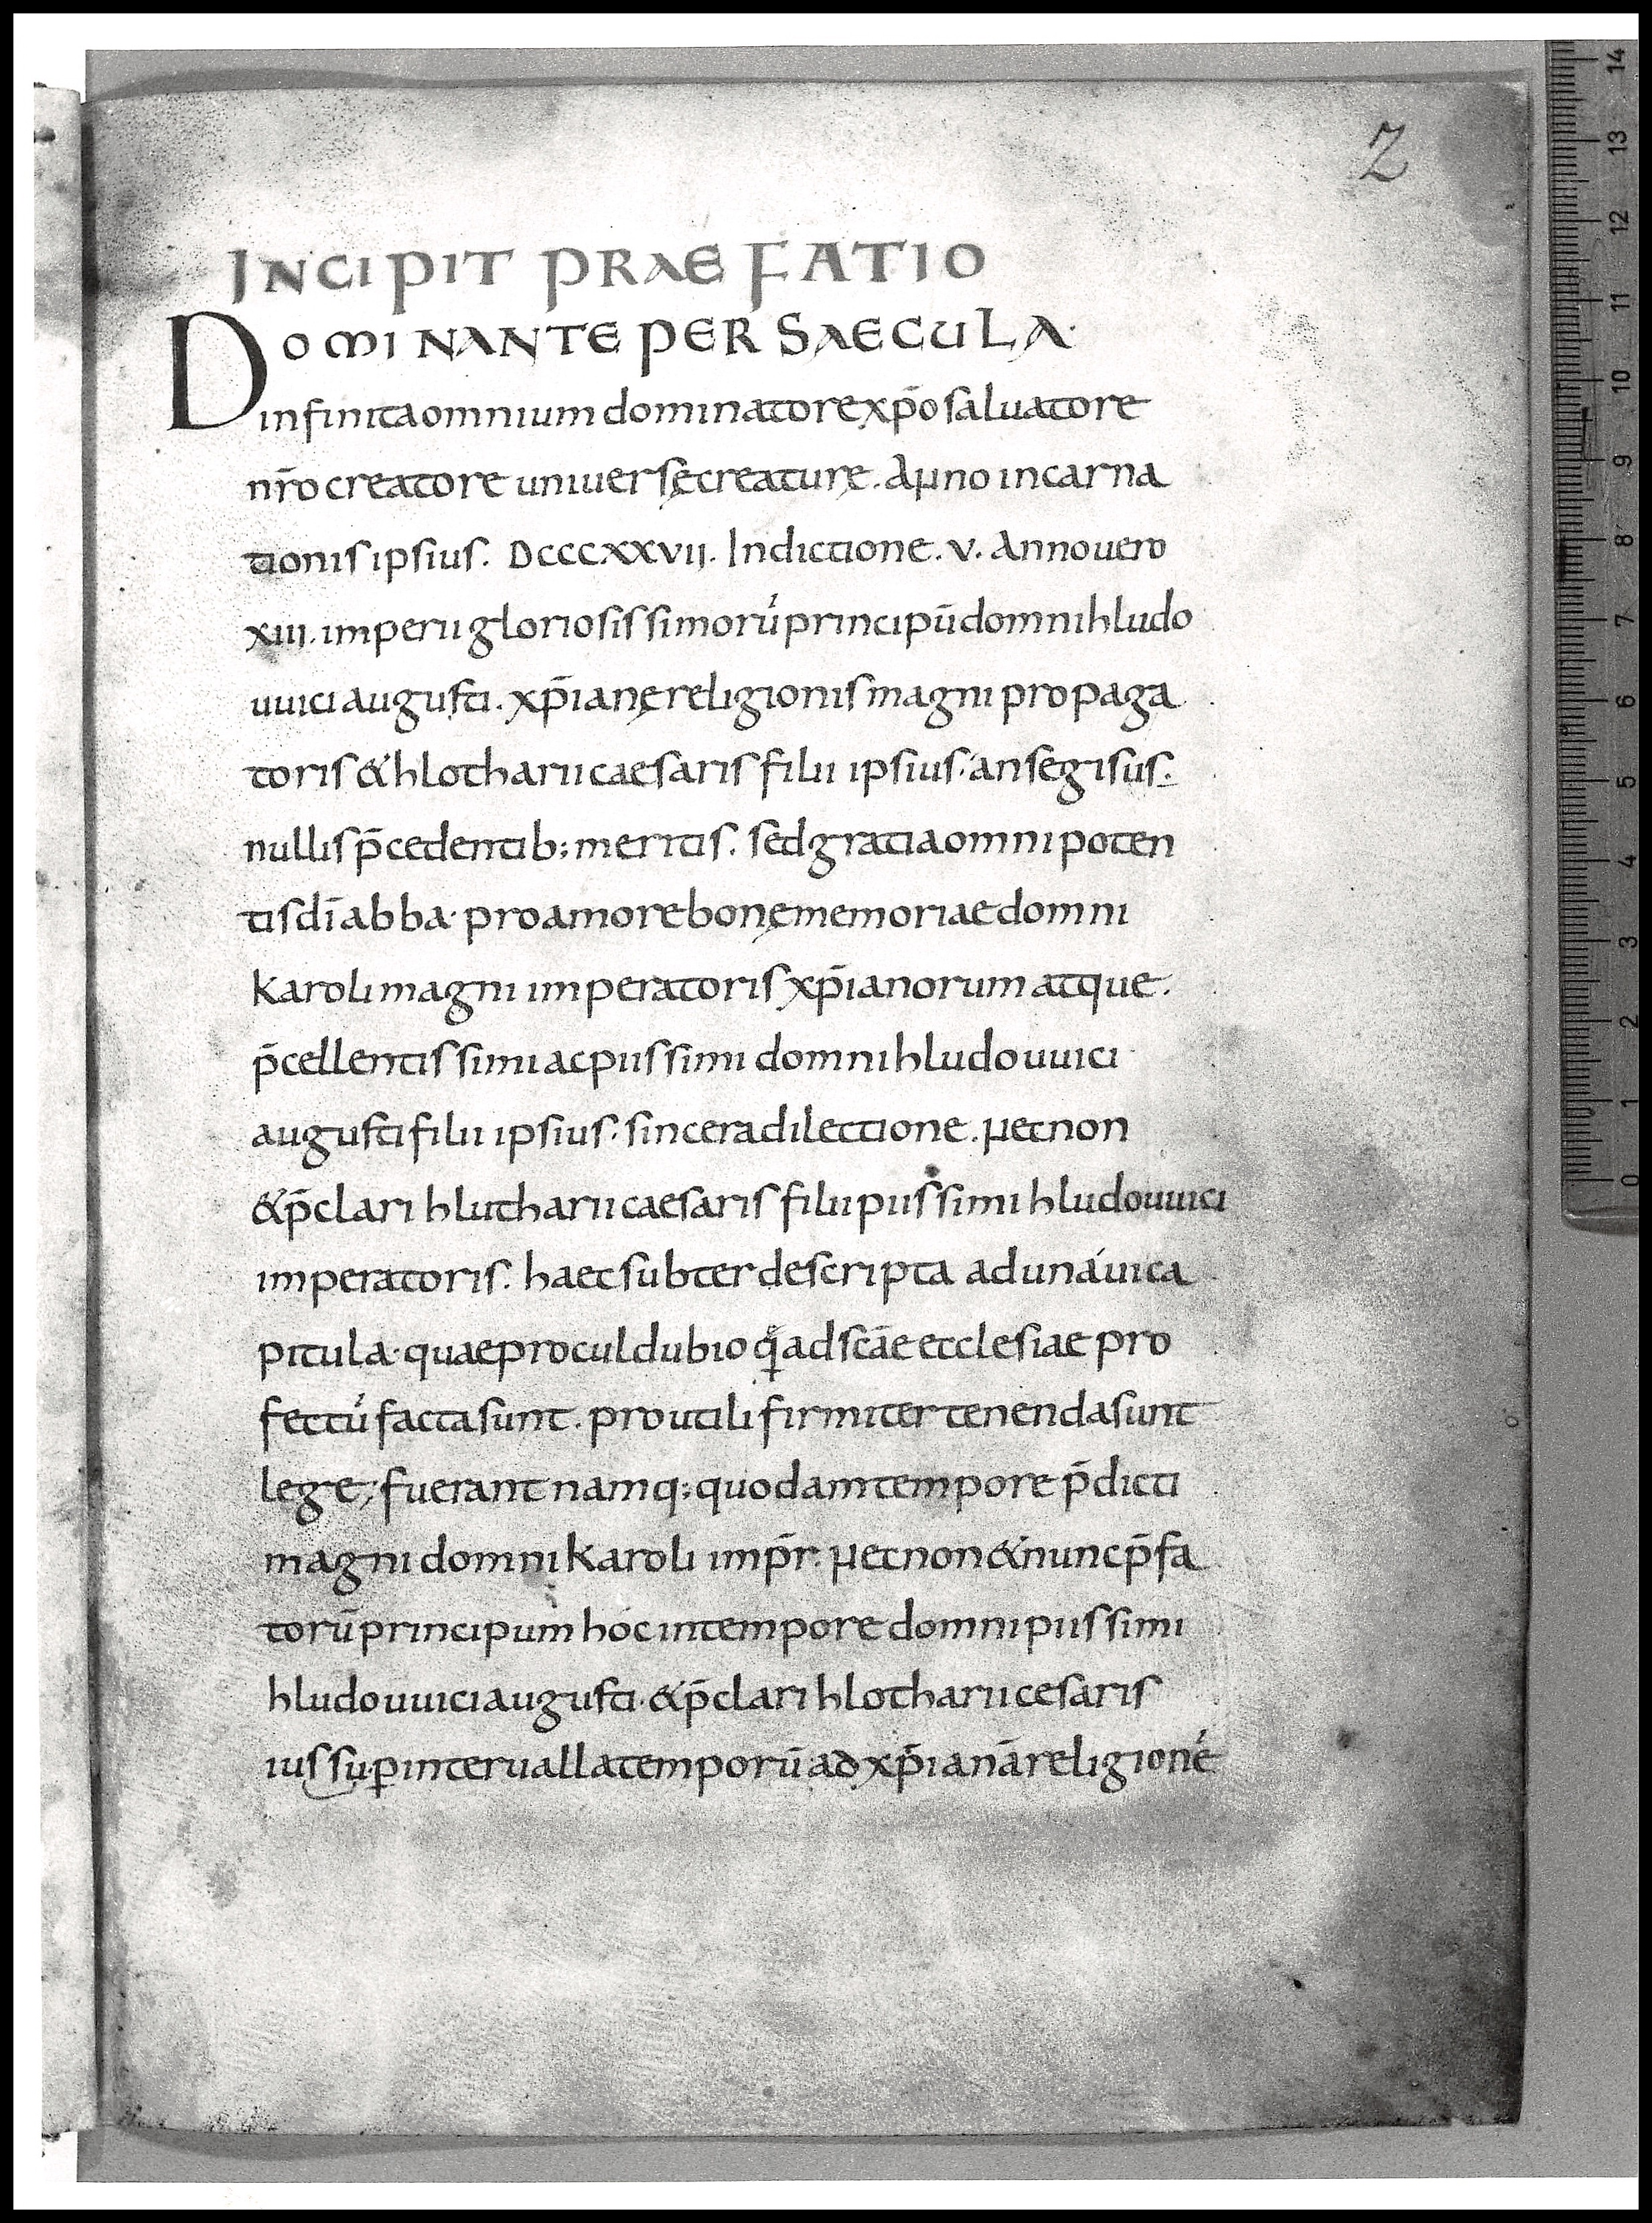 2
INCIPIT PRAEFATIO
DOMINANTE PER SAECULA·
infinita omnium dominatore xp̄o saluatore
nr̄o creatore uniuersę creaturę. Anno incarna
tionis ipsius. DCCCXXVII. Indictione. V. Anno uero
XIII. imperii gloriosissimorū principū domni hludo
uuici augusti. xp̄ianę religionis magni propaga
toris & hlotharii caesaris filii ipsius· ansegisus.
nullis p̄cedentib; meritis. sed gratia omnipoten
tis dī abba· pro amore bonę memoriae domni
karoli magni imperatoris xp̄ianorum atque.
p̄cellentissimi ac piissimi domni hludouuici
augusti filii ipsius· sincera dilectione. Necnon
& p̄clari hlutharii caesaris filii piissimi hludouuici
imperatoris. haec subter descripta adunáui ca
pitula· quae procul dubio q̄ ad sc̄ae ecclesiae pro
fectū facta sunt. pro utili firmiter tenenda sunt
lege; fuerant namq; quodam tempore p̄dicti
magni domni karoli imp̄r. Necnon & nunc p̄fa
torū principum hóc in tempore domni piissimi
hludouuici augusti· & p̄clari hlotharii cesaris
iussu ꝑ interualla temporū ad xp̄ianā religionē
0 1 2 3 4 5 6 7 8 9 10 11 12 13 14